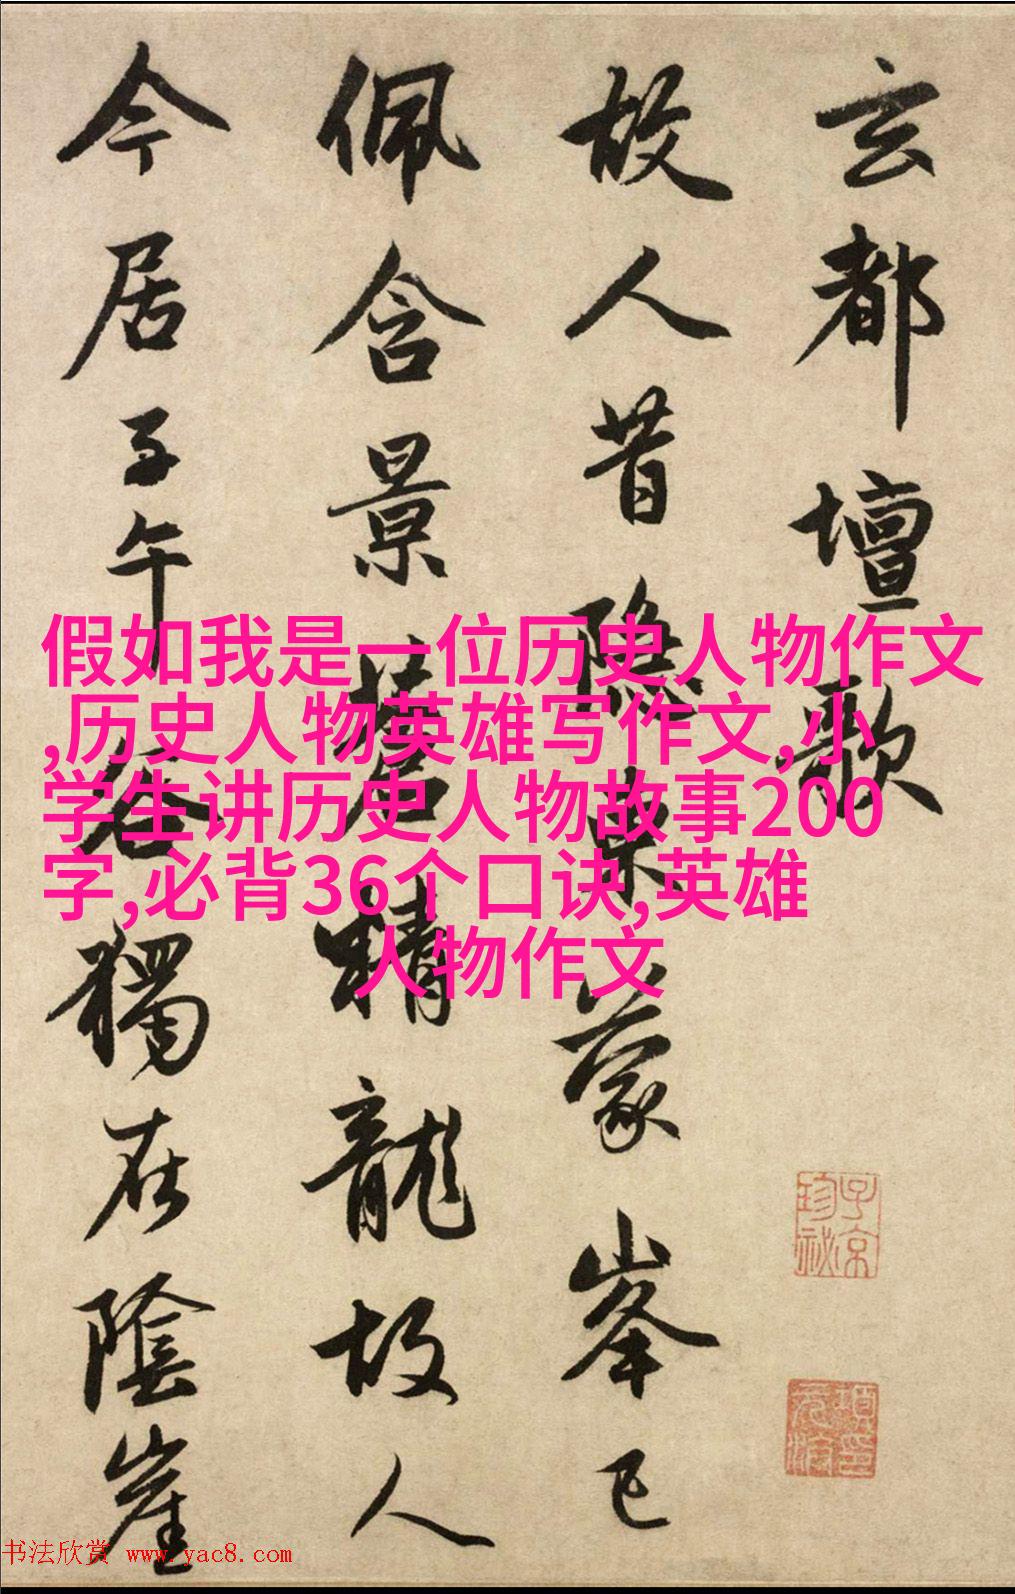 玄都壇歌
故人昔隱東蒙峯已
佩含景蒼精龍故人
今居子午谷獨在陰崖
假如我是一位历史人物作文
,历史人物英雄写作文,小
学生讲历史人物故事200
字,必背36个口诀,英雄
人物作文
子京
珍祕
书法欣赏 www.yac8.com